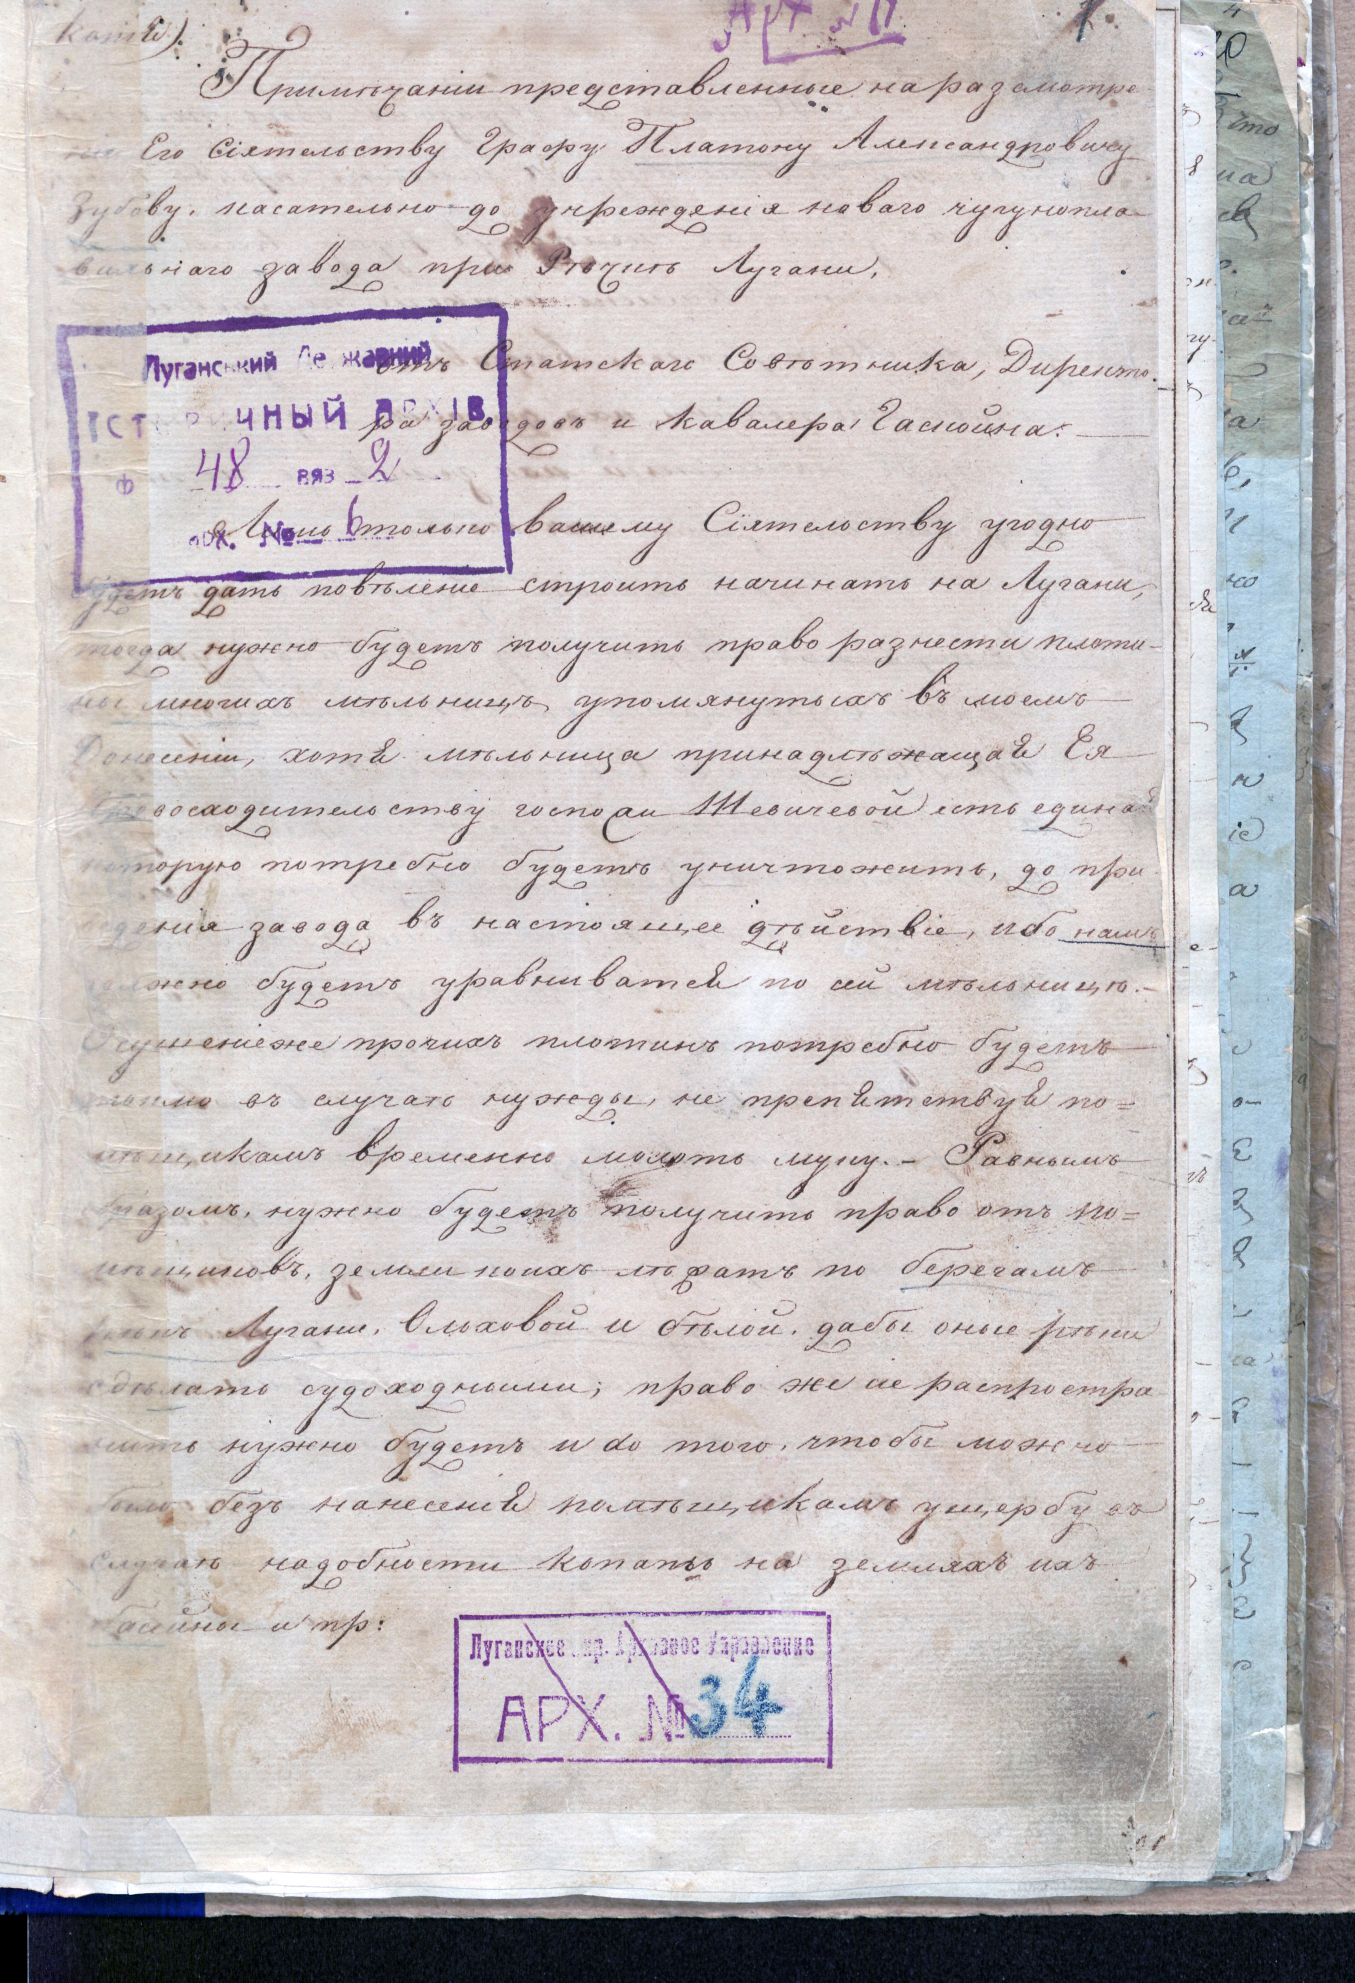 Копія).
Арх №
1
Примѣчаніи представленные на разсмотре
Его Сіятельству Графу Платону Александровичу
Зубову. касательно до учрежденія новаго чугунопла-
вильнаго завода при Рѣчкѣ Лугани.
Луганський Державний
ІСТОРИЧНЫЙ АРХІВ
Ф 48 вяз 2
арх. № 6
отъ Статскаго Совѣтника, Директо-
ра заводовъ и Кавалера Гаскойна.
только вашему Сіятельству угодно
будетъ дать повѣленіе строить начинать на Лугани,
тогда нужно будетъ получить право разнести плоти-
ны многихъ мѣльницъ, упомянутыхъ въ моемъ
Донесеніи, хотя мѣльница принадлѣжащая Ея
Превосходительству госпожи Шевичевой есть единая
которую потребно будетъ уничтожить, до при
веденія завода въ настоящее дѣйствіе, ибо намъ
должно будетъ уравниватся по сей мѣльницѣ.-
Осушеніеже прочихъ плотинъ потребно будетъ
токмо въ случаѣ нужды, не препятствуя по=
мѣщикамъ временно молоть муку.- Равнымъ
образомъ, нужно будетъ получить право отъ по=
мѣщиковъ, земли коихъ лѣжатъ по берегамъ
рѣкъ Лугани, Ольховой и Бѣлой. дабы оные рѣки
сдѣлать судоходными; право же сіе распростра
нить нужно будетъ и до того, чтобы можно
было безъ нанесенія помѣщикамъ ущербу въ
случаѣ надобности копать на земляхъ ихъ
басѣйны и пр:
Луганское Архивное Управление
АРХ. № 34